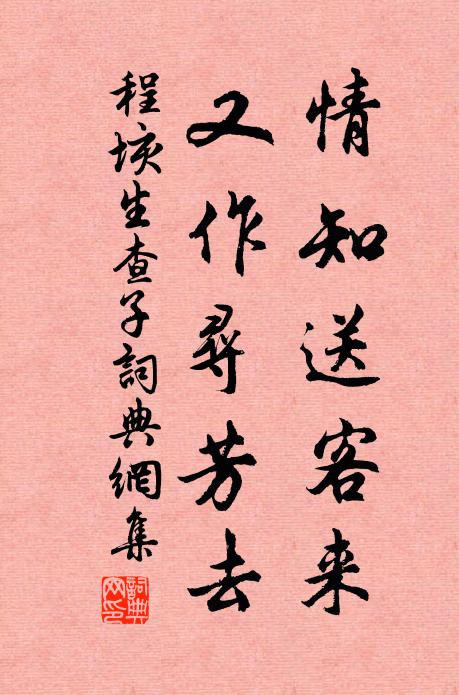 情知送客来
又作尋芳去
程垓生查子詞典網集
詞典网印